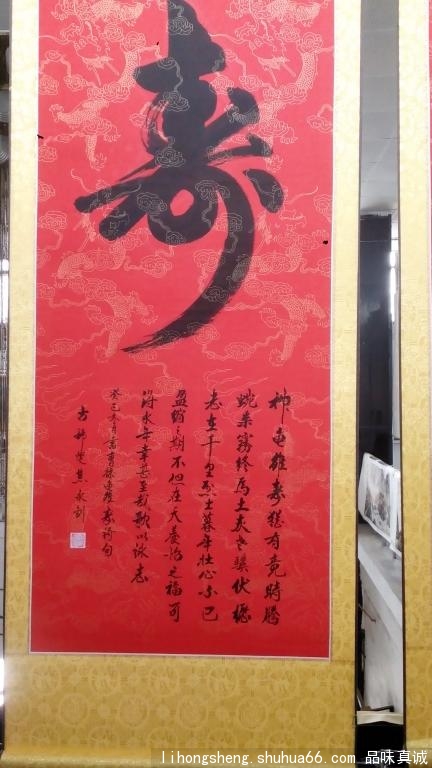 寿
神龟雖寿猶有竟時騰
蛇乘霧终為土灰老驥伏櫪
志在千里烈士暮年壮心不已
盈縮之期不但在天養怡之福可
得永年幸甚至哉歌以詠志
癸巳年月書曹操龟雖寿詩句
lihongsheng.shuhua66.com 品味真诚